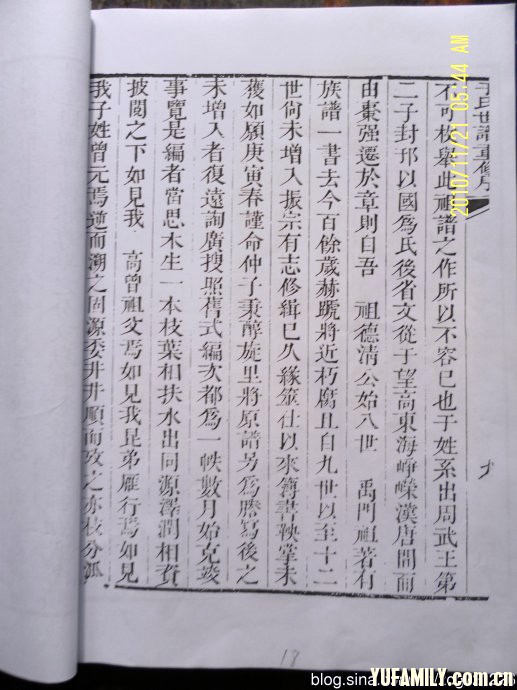 于氏世譜重修序
不可枚舉此祖譜之作所以不容已也于姓系出周武王第
二子封邘以國爲氏後省文從于望高東海崢嶸漢唐間而
由棗强遷於章則自吾 祖德清公始八世 禹門祖著有
族譜一書去今百餘歲赫蹏將近朽腐且自九世以至十二
世尙未增入振宗有志修緝已久緣筮仕以來簿書鞅掌未
獲如願庚寅春謹命仲子秉醇旋里將原譜另爲謄寫後之
未增入者復遠詢廣搜照舊式編次都爲一帙數月始克竣
事覽是編者當思木生一本枝葉相扶水出同源澤潤相資
披閱之下如見我 高曾祖父焉如見我昆弟雁行焉如見
我子姓曾元焉遡而溯之固源委井井順而攷之亦枝分派
2010/11/21 05:44 AM
18
blog.sina
YUFAMILY.com.cn